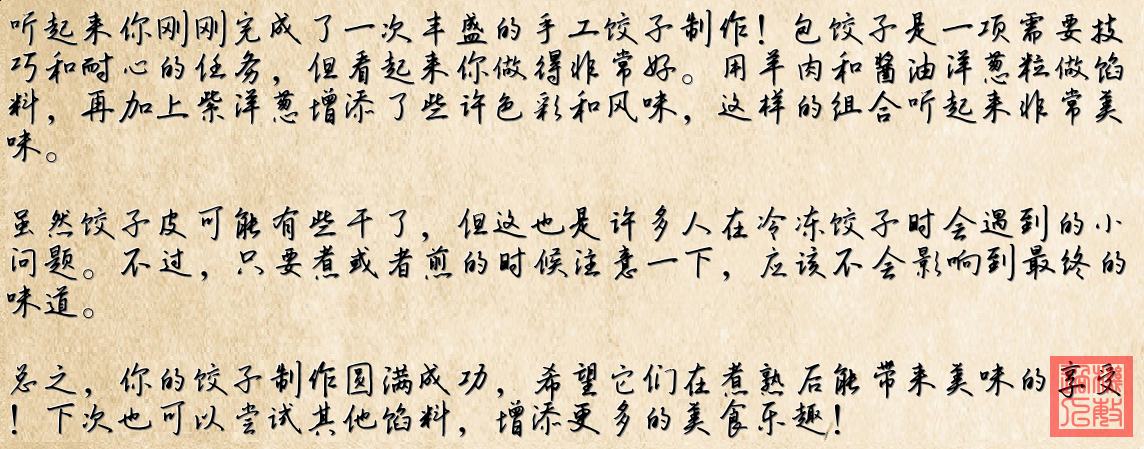 听起来你刚刚完成了一次丰盛的手工饺子制作！包饺子是一项需要技
巧和耐心的任务，但看起来你做得非常好。用羊肉和酱油洋葱粒做馅
料，再加上紫洋葱增添了些许色彩和风味，这样的组合听起来非常美
味。
虽然饺子皮可能有些干了，但这也是许多人在冷冻饺子时会遇到的小
问题。不过，只要煮或者煎的时候注意一下，应该不会影响到最终的
味道。
总之，你的饺子制作圆满成功，希望它们在煮熟后能带来美味的享受
！下次也可以尝试其他馅料，增添更多的美食乐趣！